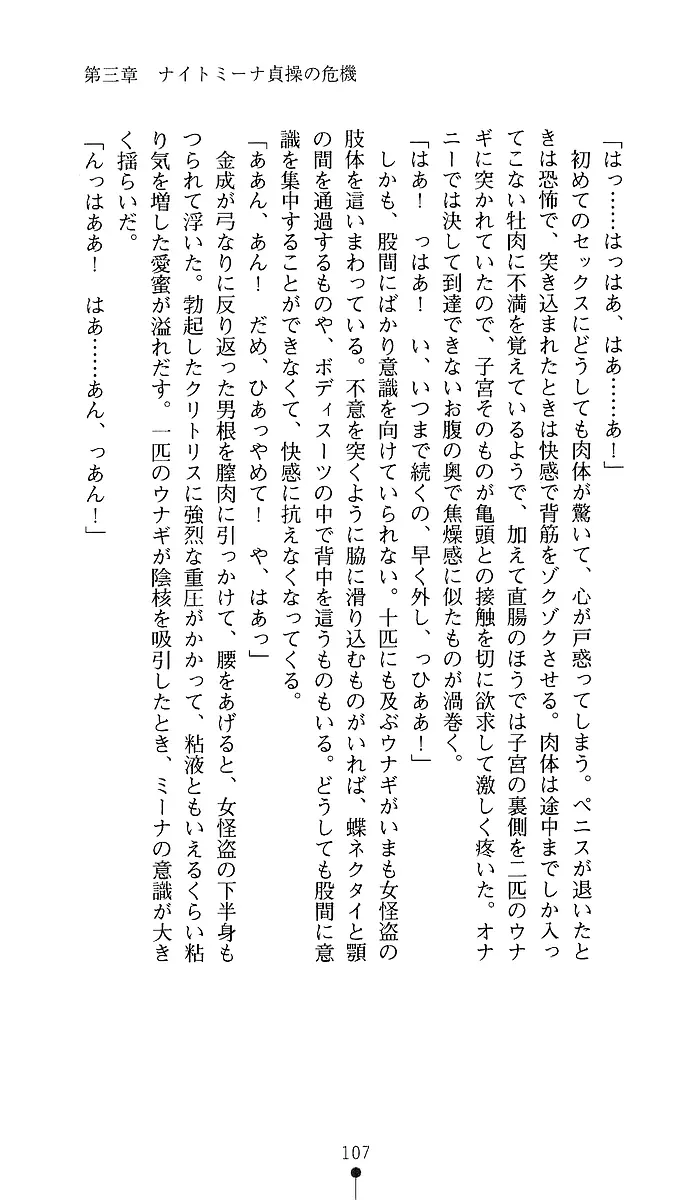 第三章　ナイトミーナ貞操の危機
「はっ……はっはあ、はぁ……あ！」
　初めてのセックスにどうしても肉体が驚いて、心が戸惑ってしまう。ペニスが退いたと
きは恐怖で、突き込まれたときは快感で背筋をゾクゾクさせる。肉体は途中までしか入っ
てこない牡肉に不満を覚えているようで、加えて直腸のほうでは子宮の裏側を二匹のウナ
ギに突かれていたので、子宮そのものが亀頭との接触を切に欲求して激しく疼いた。オナ
ニーでは決して到達できないお腹の奥で焦燥感に似たものが渦巻く。
「はぁ！　っはあ！　い、いつまで続くの、早く外し、っひああ！」
　しかも、股間にばかり意識を向けていられない。十匹にも及ぶウナギがいまも女怪盗の
肢体を這いまわっている。不意を突くように脇に滑り込むものがいれば、蝶ネクタイと顎
の間を通過するものや、ボディスーツの中で背中を這うものもいる。どうしても股間に意
識を集中することができなくて、快感に抗えなくなってくる。
「ああん、あん！　だめ、ひあっやめて！　や、はあっ」
　金成が弓なりに反り返った男根を膣肉に引っかけて、腰をあげると、女怪盗の下半身も
つられて浮いた。勃起したクリトリスに強烈な重圧がかかって、粘液ともいえるくらい粘
り気を増した愛蜜が溢れだす。一匹のウナギが陰核を吸引したとき、ミーナの意識が大き
く揺らいだ。
「んっはああ！　はぁ……あん、っあん！」
107